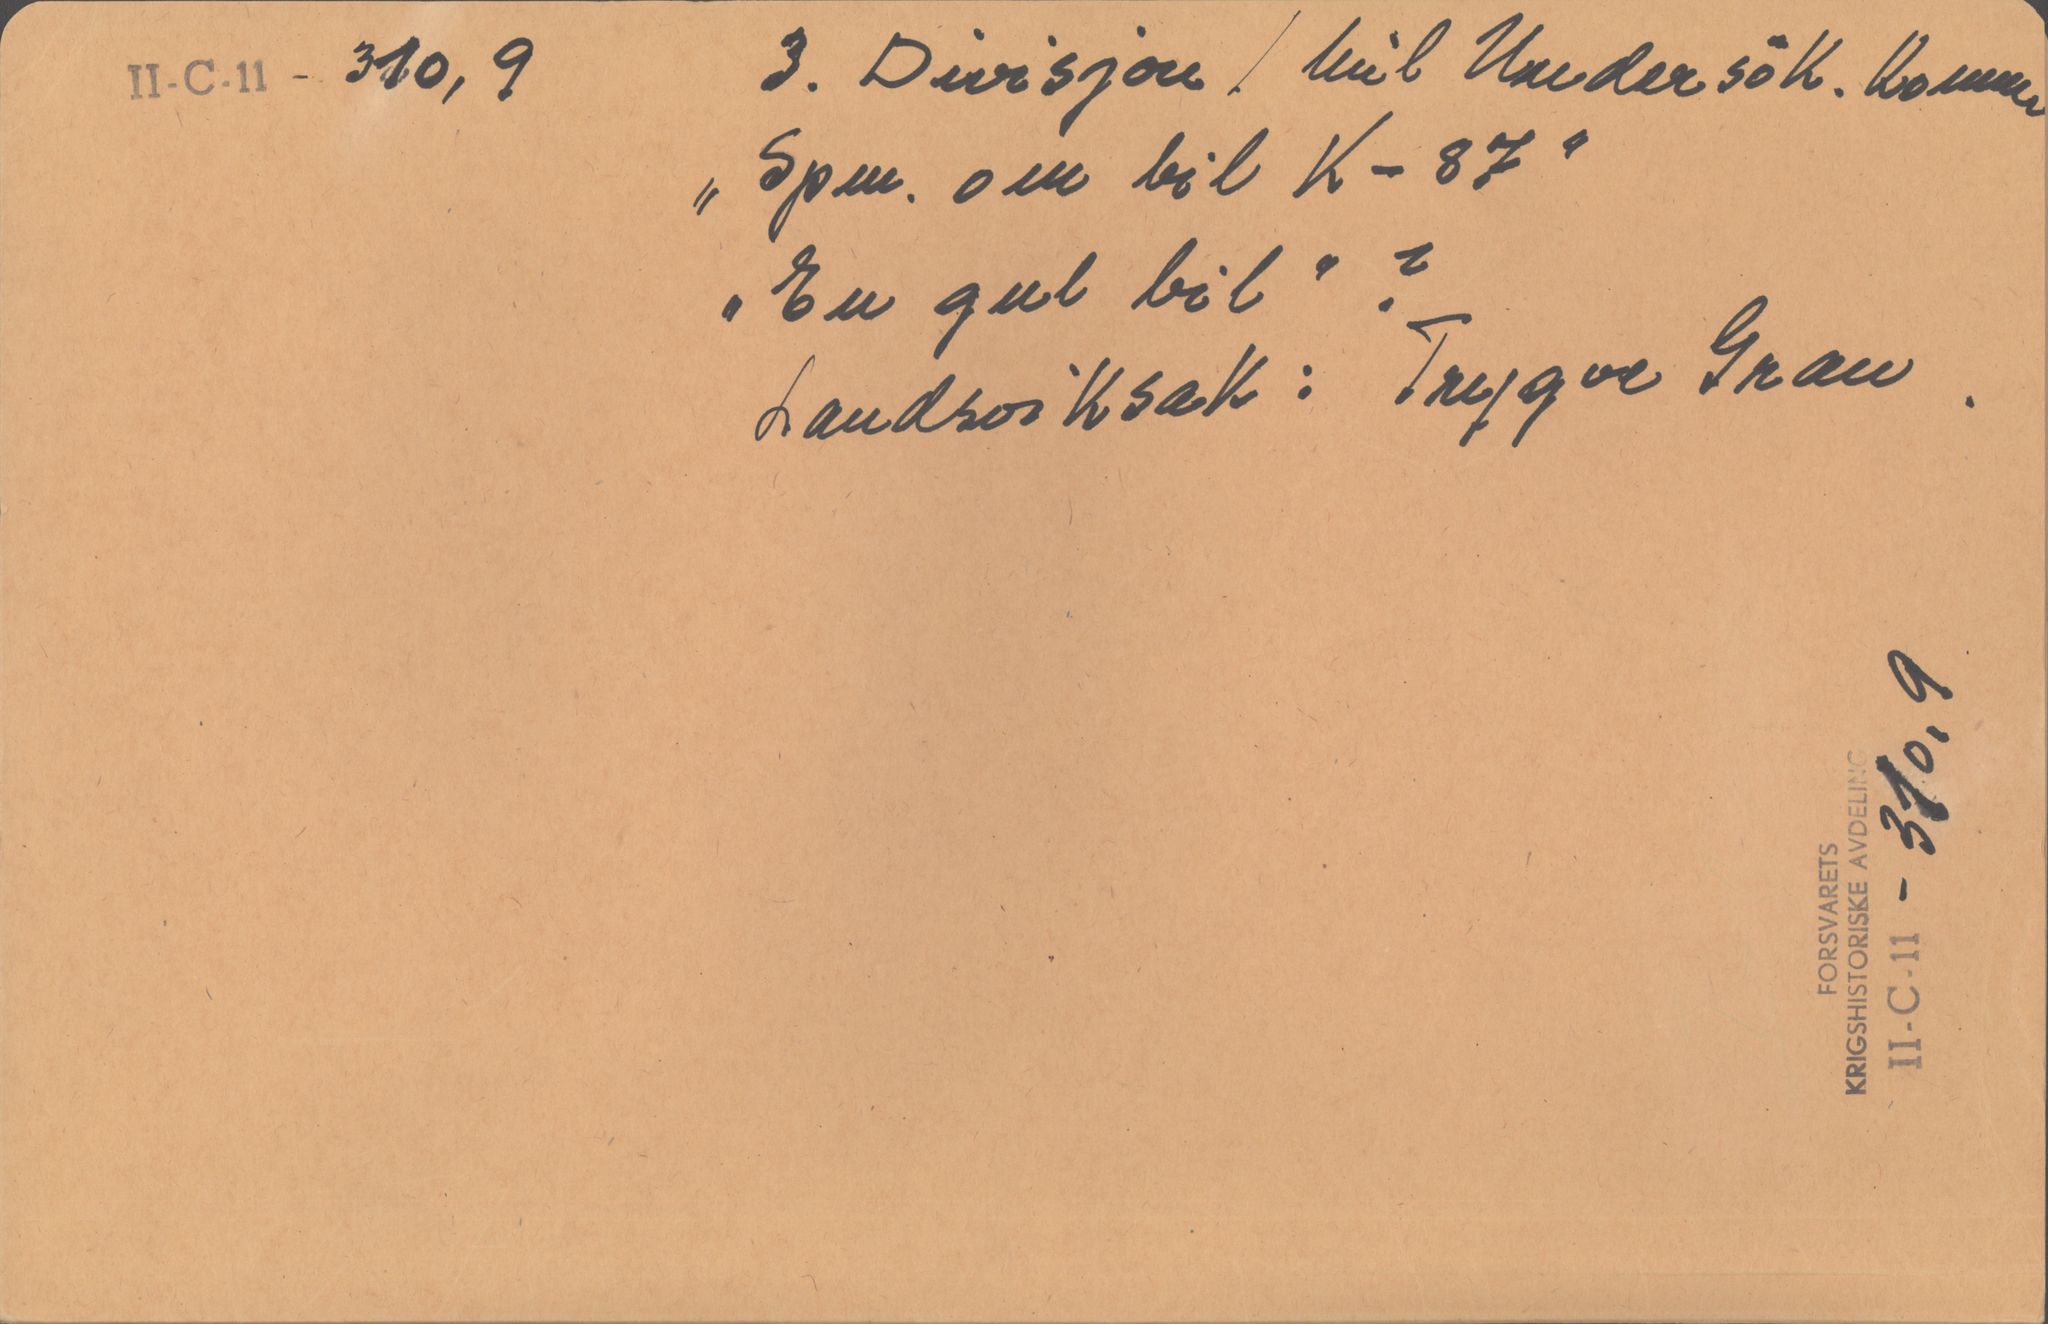 II-C-11 - 310,9
3. Divisjon / Mil Undersök. Komm
„Spm. om bil K-87"
„En gul bil" ?
Landssviksak: Tryggve Gran.
FORSVARETS
KRIGSHISTORISKE AVDELING
II-C-11 - 310,9